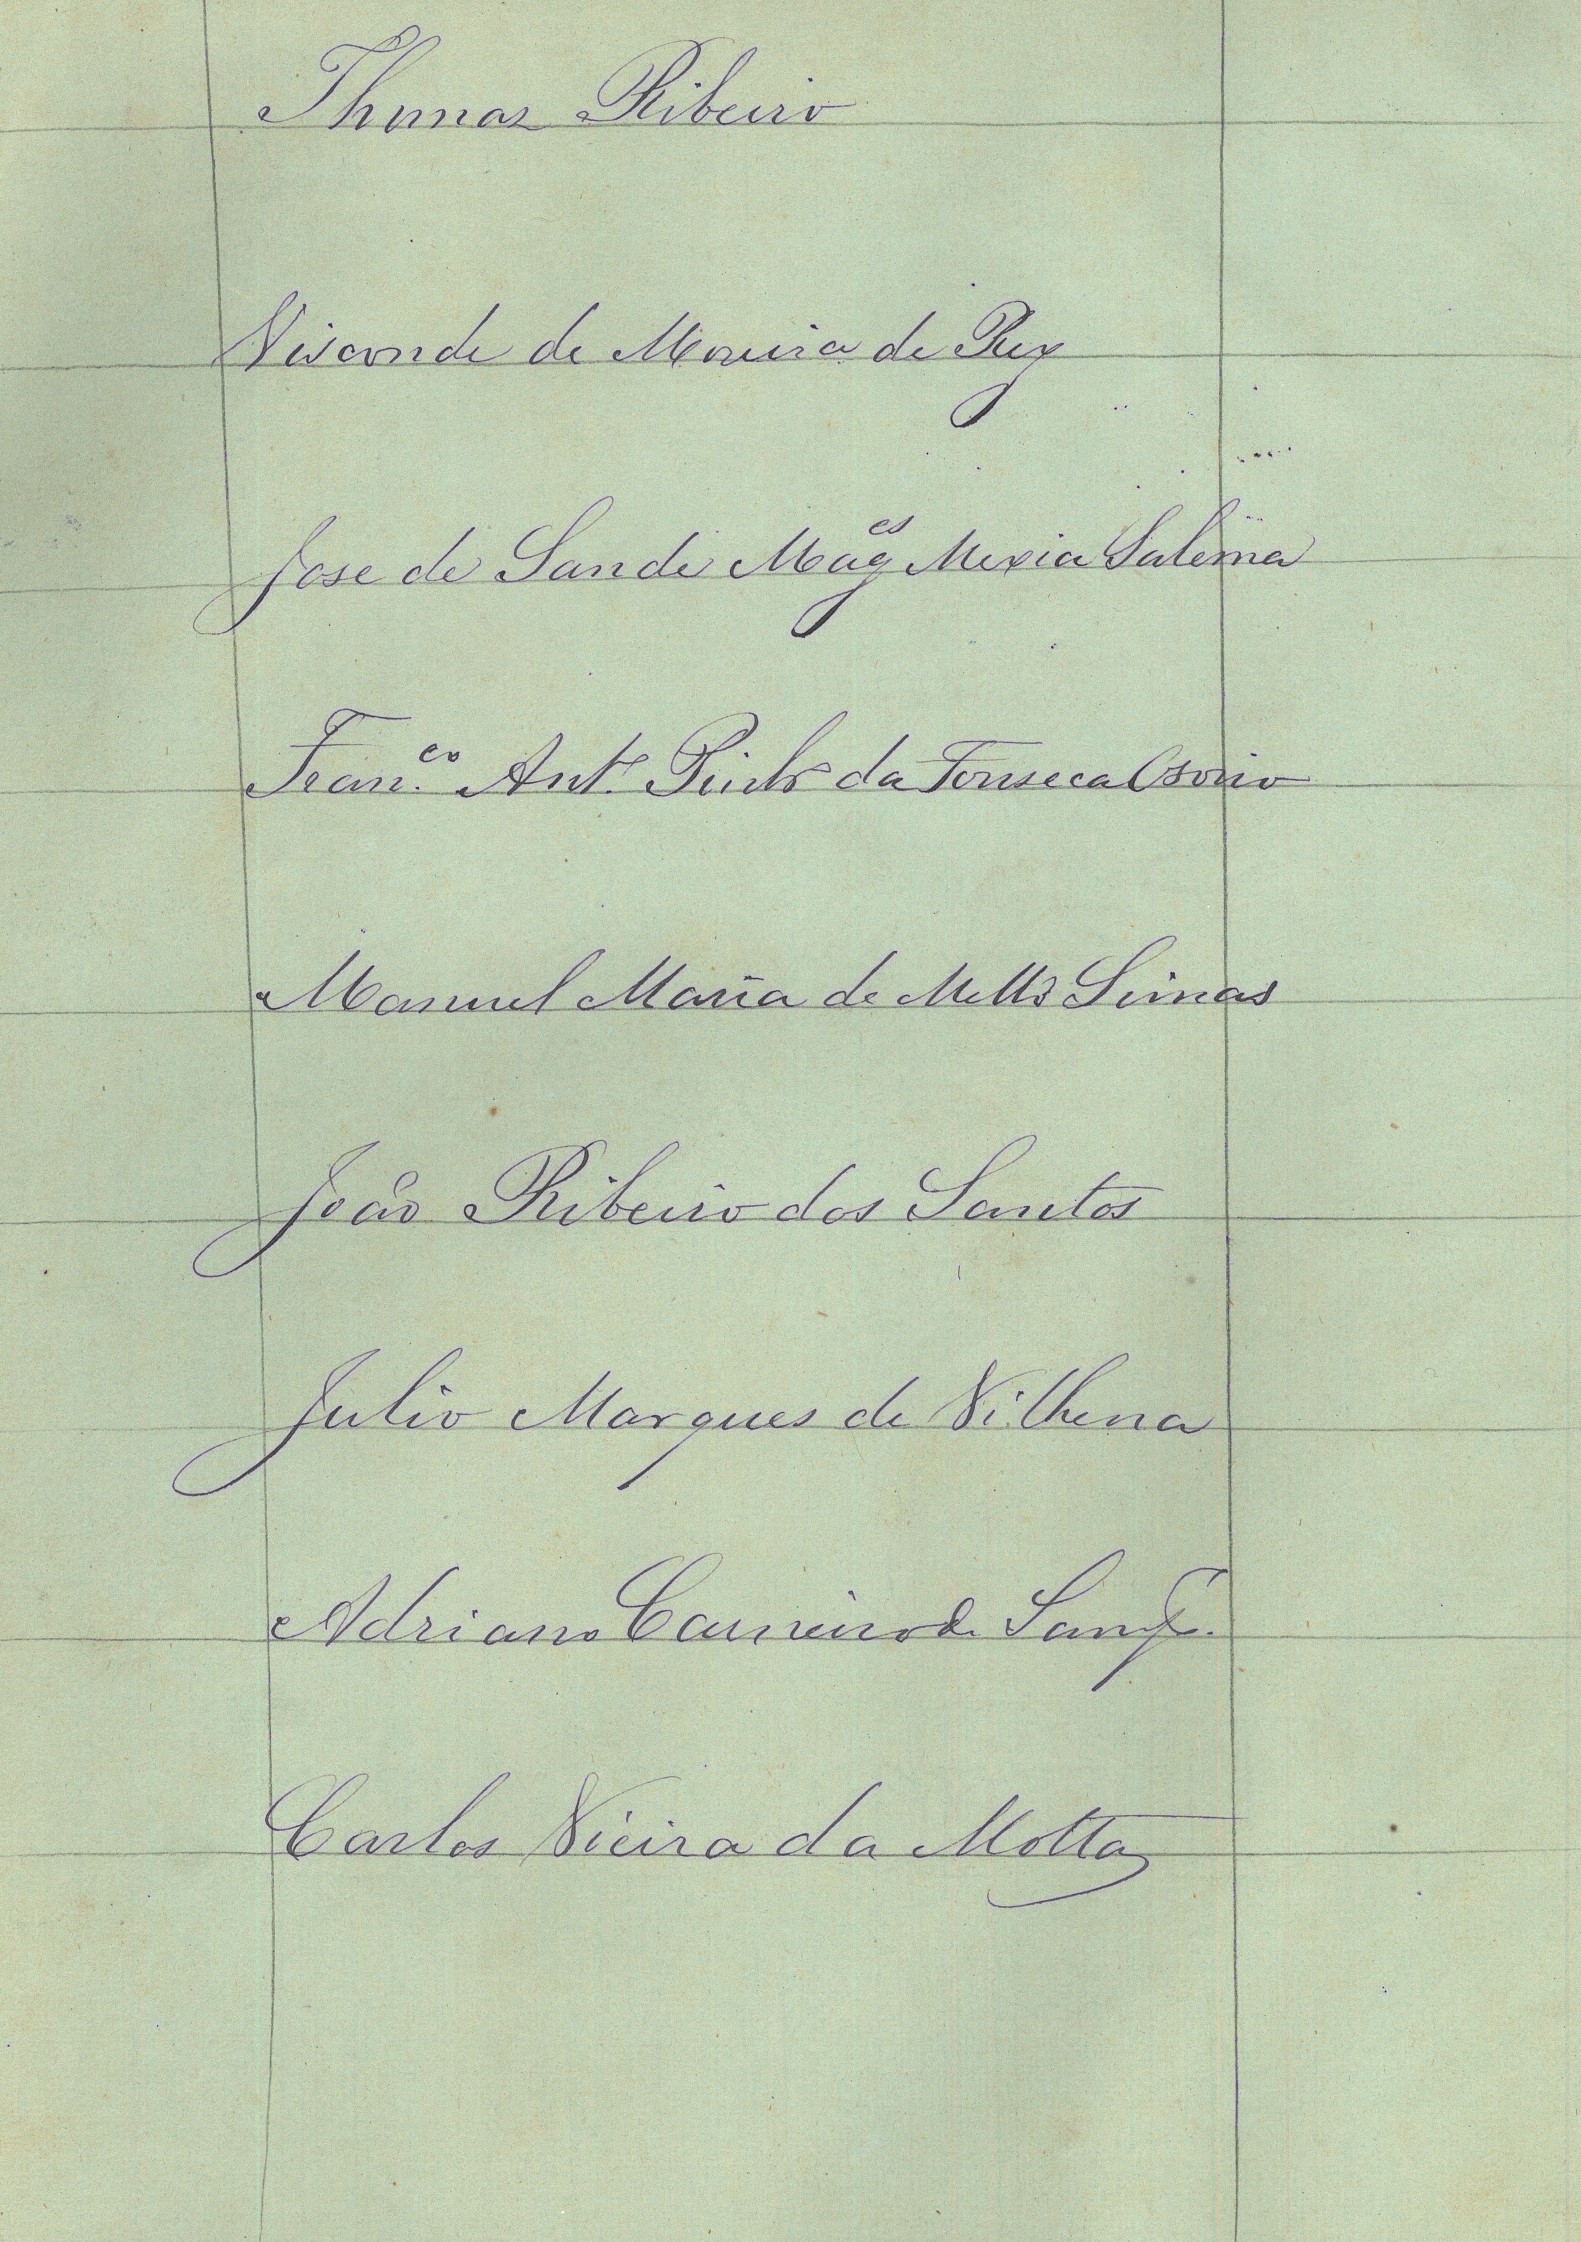 Thomaz Ribeiro
Visconde de Moreira de Rey
Jose de Sande Mag.es Mexia Salema
Fran.co Ant.o Pinto da Fonseca Osorio
Manuel Maria de Mello Simas
João Ribeiro dos Santos
Julio Marques de Vilhena
Adriano Carneiro de Samp.o
Carlos Vieira da Motta